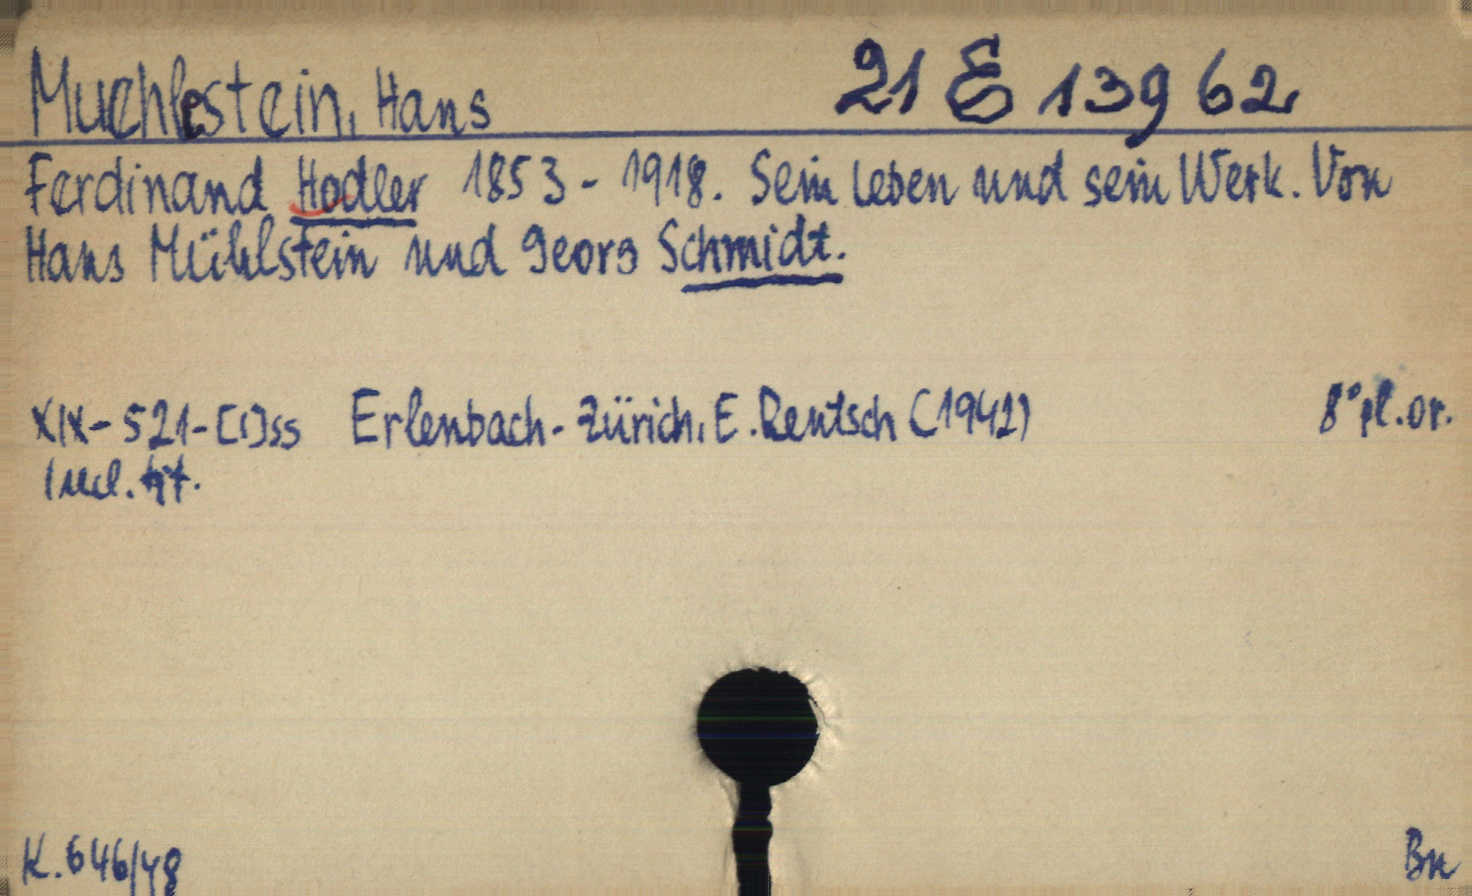 Muehlestein, Hans 21 E 139 62
Ferdinand Hodler 1853 - 1918. Sein Leben und sein Werk. Von
Hans Mühlstein und Georg Schmidt.
XIX-521-[1]ss Erlenbach-Zürich, E. Rentsch (1942) 8° pl.or.
Incl. tit.
K. 646/48 Bn